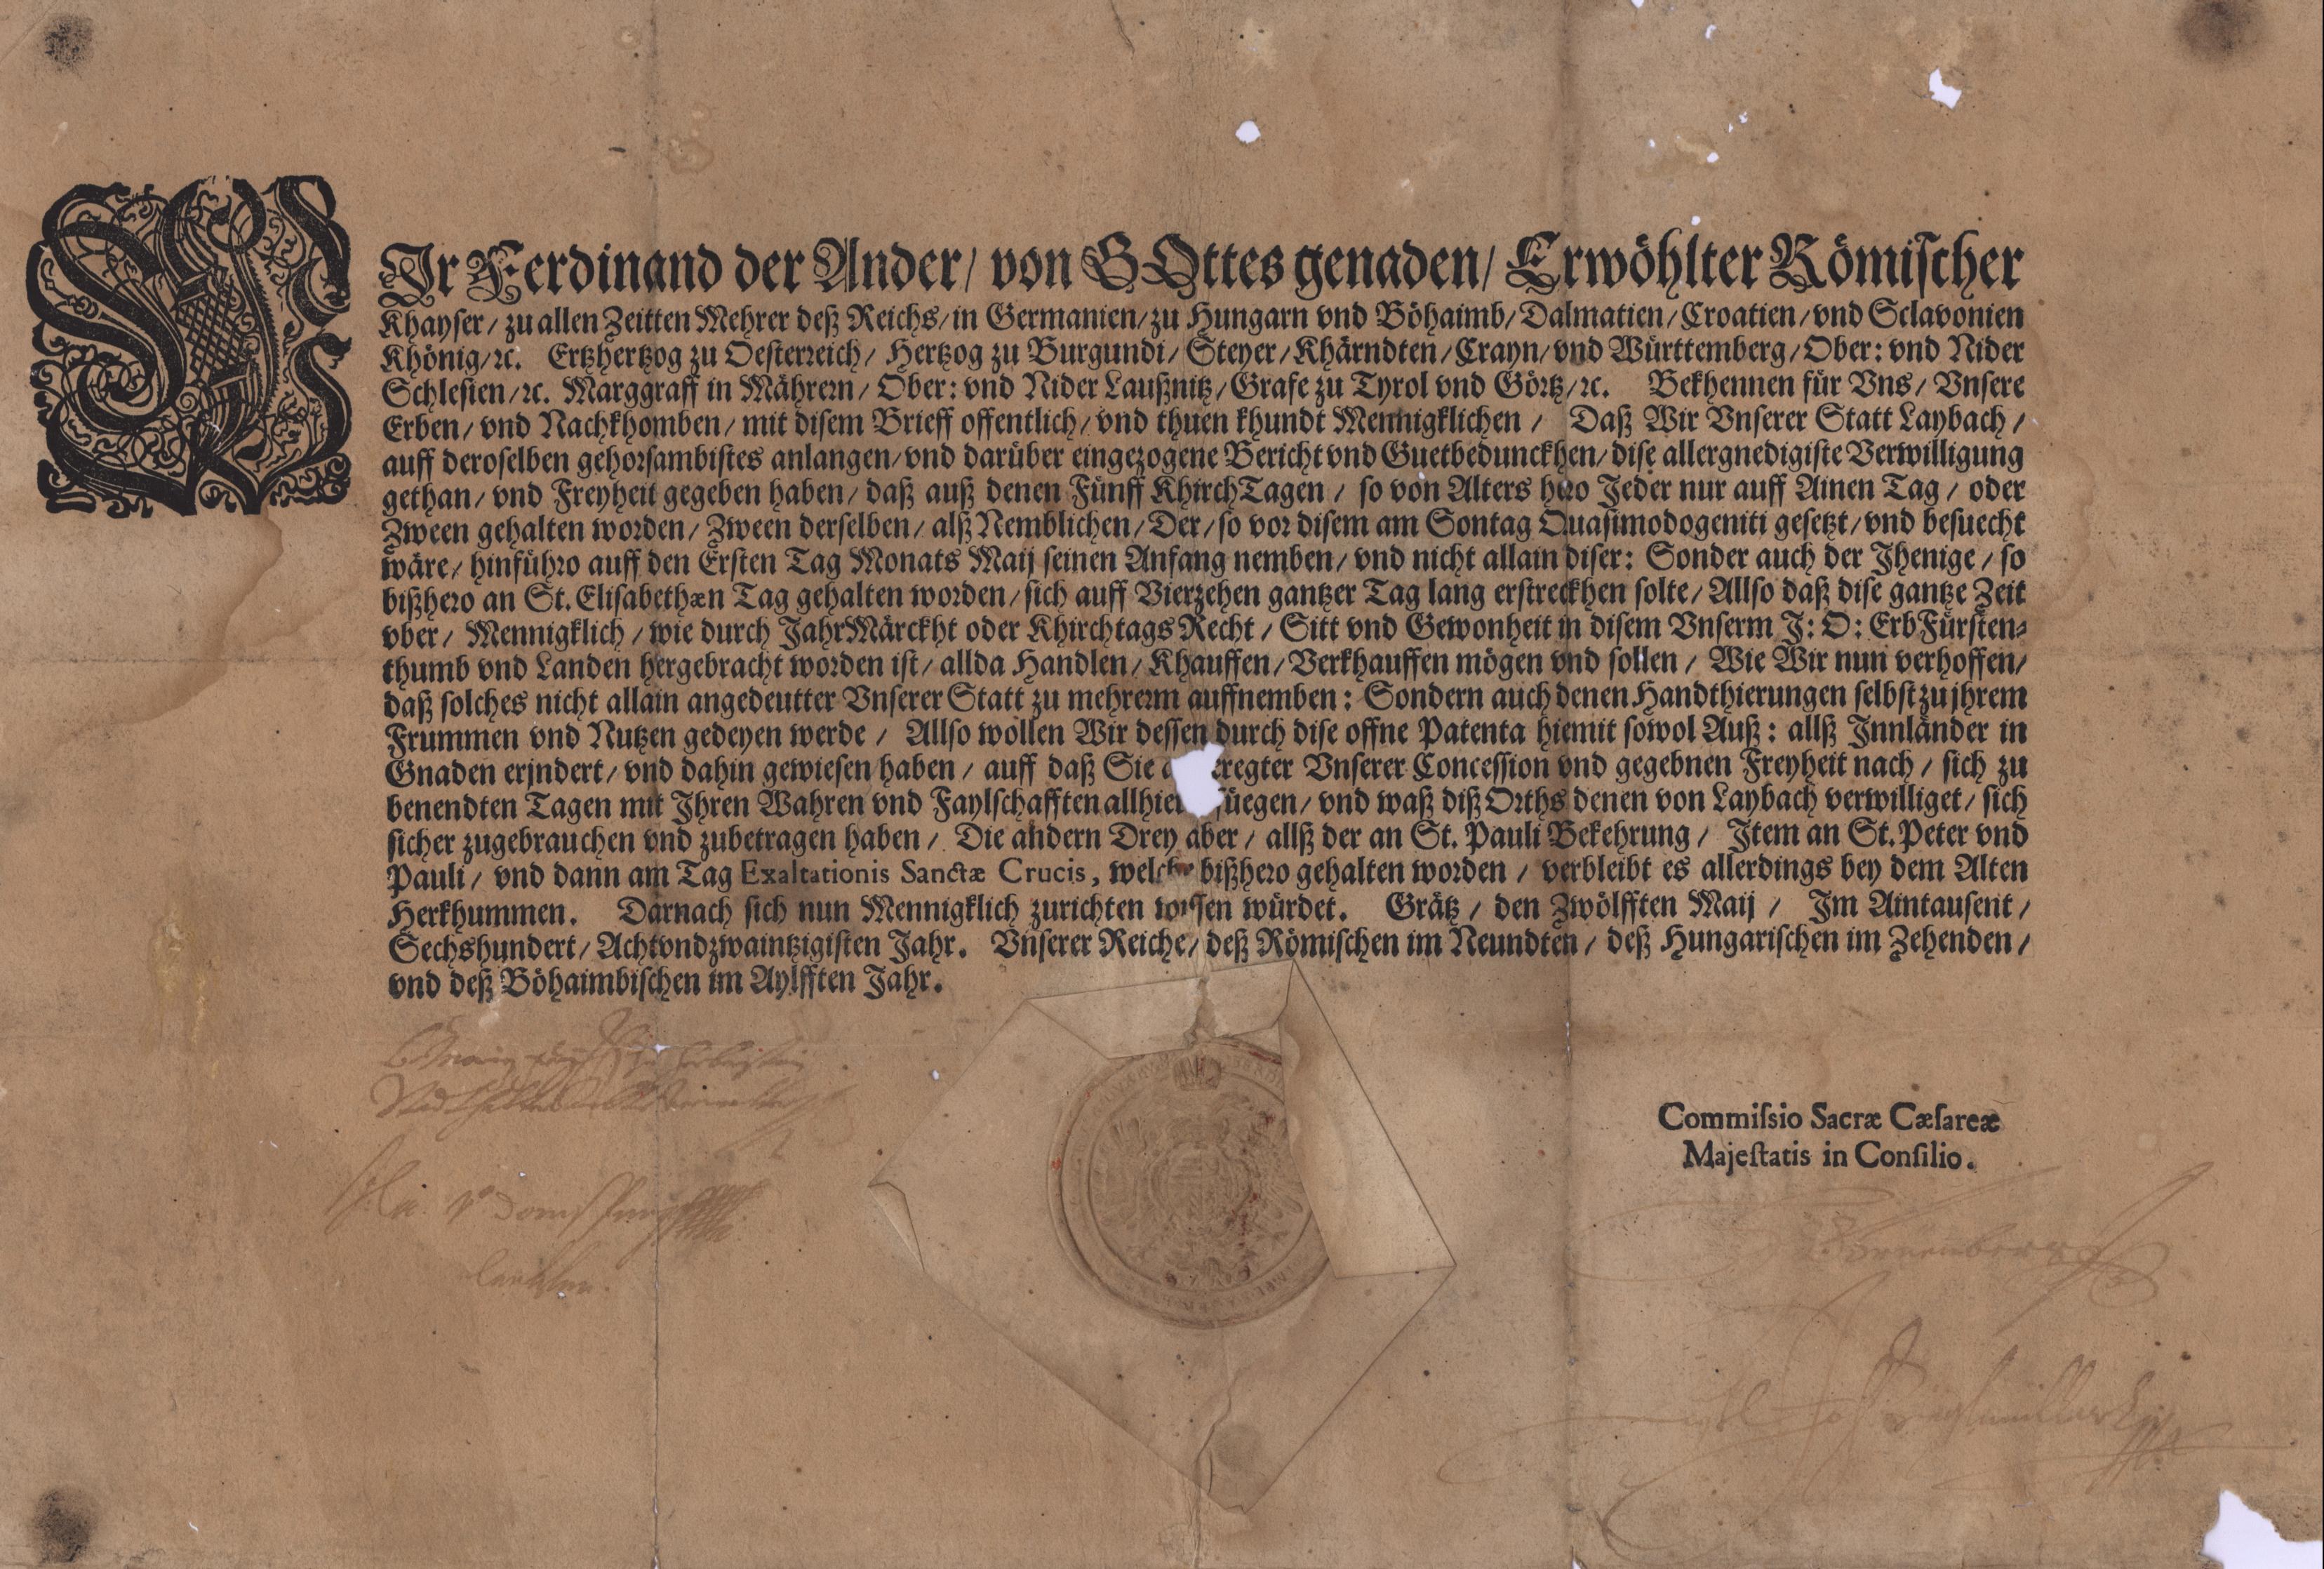 WIr Ferdinand der Ander / von GOttes genaden / Erwöhlter Römischer
Khayser / zu allen Zeitten Mehrer deß Reichs / in Germanien / zu Hungarn vnd Böhaimb / Dalmatien / Croatien / vnd Sclavonien
Khönig / ꝛc. Ertzhertzog zu Oesterreich / Hertzog zu Burgundi / Steyer / Khärndten / Crayn / vnd Württemberg / Ober: vnd Nider
Schlesien / ꝛc. Marggraff in Mährern / Ober: vnd Nider Laußnitz / Grafe zu Tyrol vnd Görtz / ꝛc. Bekhennen für Vns / Vnsere
Erben / vnd Nachkhomben / mit disem Brieff offentlich / vnd thuen khundt Mennigklichen / Daß Wir Vnserer Statt Laybach /
auff deroselben gehorsambistes anlangen / vnd darüber eingezogene Bericht vnd Guetbedunckhen / dise allergnedigiste Verwilligung
gethan / vnd Freyheit gegeben haben / daß auß denen Fünff KhirchTagen / so von Alters hero Jeder nur auff Ainen Tag / oder
Zween gehalten worden / Zween derselben / alß Nemblichen / Der / so vor disem am Sontag Quasimodogeniti gesetzt / vnd besuecht
wäre / hinführo auff den Ersten Tag Monats Maij seinen Anfang nemben / vnd nicht allain diser: Sonder auch der Jhenige / so
bißhero an St. Elisabethæn Tag gehalten worden / sich auff Vierzehen gantzer Tag lang erstreckhen solte / Allso daß dise gantze Zeit
vber / Mennigklich / wie durch JahrMärckht oder Khirchtags Recht / Sitt vnd Gewonheit in disem Vnserm J: O: ErbFürsten-
thumb vnd Landen hergebracht worden ist / allda Handlen / Khauffen / Verkhauffen mögen vnd sollen / Wie Wir nun verhoffen /
daß solches nicht allain angedeutter Vnserer Statt zu mehrerm auffnemben: Sondern auch denen Handthierungen selbst zu jhrem
Frummen vnd Nutzen gedeyen werde / Allso wöllen Wir dessen durch dise offne Patenta hiemit sowol Auß: allß Innländer in
Gnaden erjndert / vnd dahin gewiesen haben / auff daß Sie eregter Vnserer Concession vnd gegebnen Freyheit nach / sich zu
benendten Tagen mit Jhren Wahren vnd Faylschafften allhier füegen / vnd waß diß Orths denen von Laybach verwilliget / sich
sicher zugebrauchen vnd zubetragen haben / Die andern Drey aber / allß der an St. Pauli Bekehrung / Jtem an St. Peter vnd
Pauli / vnd dann am Tag Exaltationis Sanctæ Crucis, welche bißhero gehalten worden / verbleibt es allerdings bey dem Alten
Herkhummen. Darnach sich nun Mennigklich zurichten wissen würdet. Grätz / den Zwölfften Maij / Im Aintausent /
Sechshundert / Achtvndzwaintzigisten Jahr. Vnserer Reiche / deß Römischen im Neundten / deß Hungarischen im Zehenden /
vnd deß Böhaimbischen im Aylfften Jahr.
Commissio Sacræ Cæsareæ
Majestatis in Consilio.